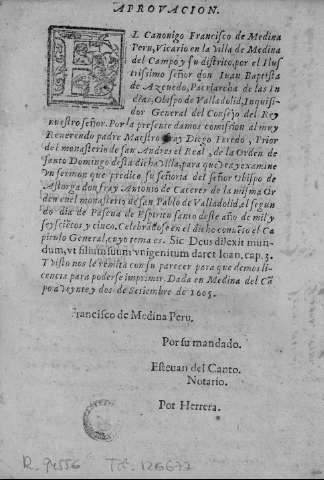 APROVACION.
EL Canonigo Francisco de Medina
Peru, Vicario en la Villa de Medina
del Campo y su distrito, por el Ilus
trissimo señor don Iuan Baptista
de Azeuedo, Patriarcha de las In
dias, Obispo de Valladolid, Inquisi-
dor General del Consejo del Rey
nuestro señor. Por la presente damos comission al muy
Reuerendo padre Maestro fray Diego Peredo, Prior
del monasterio de san Andres el Real, de la Orden de
santo Domingo desta dicha villa, para que vea y examine
vn sermon que predico su señoria del señor Obispo de
Astorga don fray Antonio de Caceres de la misma Or
den en el monasterio de san Pablo de Valladolid, el segun
do dia de Pascua de Espiritu santo deste año de mil y
seyscientos y cinco. Celebrandose en el dicho conuento el Ca
pitulo General, cuyo tema es. Sic Deus dilexit mun-
dum, vt filium suum vnigenitum daret Ioan. cap. 3.
Y visto nos le remita con su parecer para que demos li-
cencia para poderse imprimir. Dada en Medina del Cã
po a veynte y dos de Setiembre de 1605.
Francisco de Medina Peru.
Por su mandado.
Esteuan del Canto.
Notario.
Por Herrera.
R. 94556 Tit. 126677